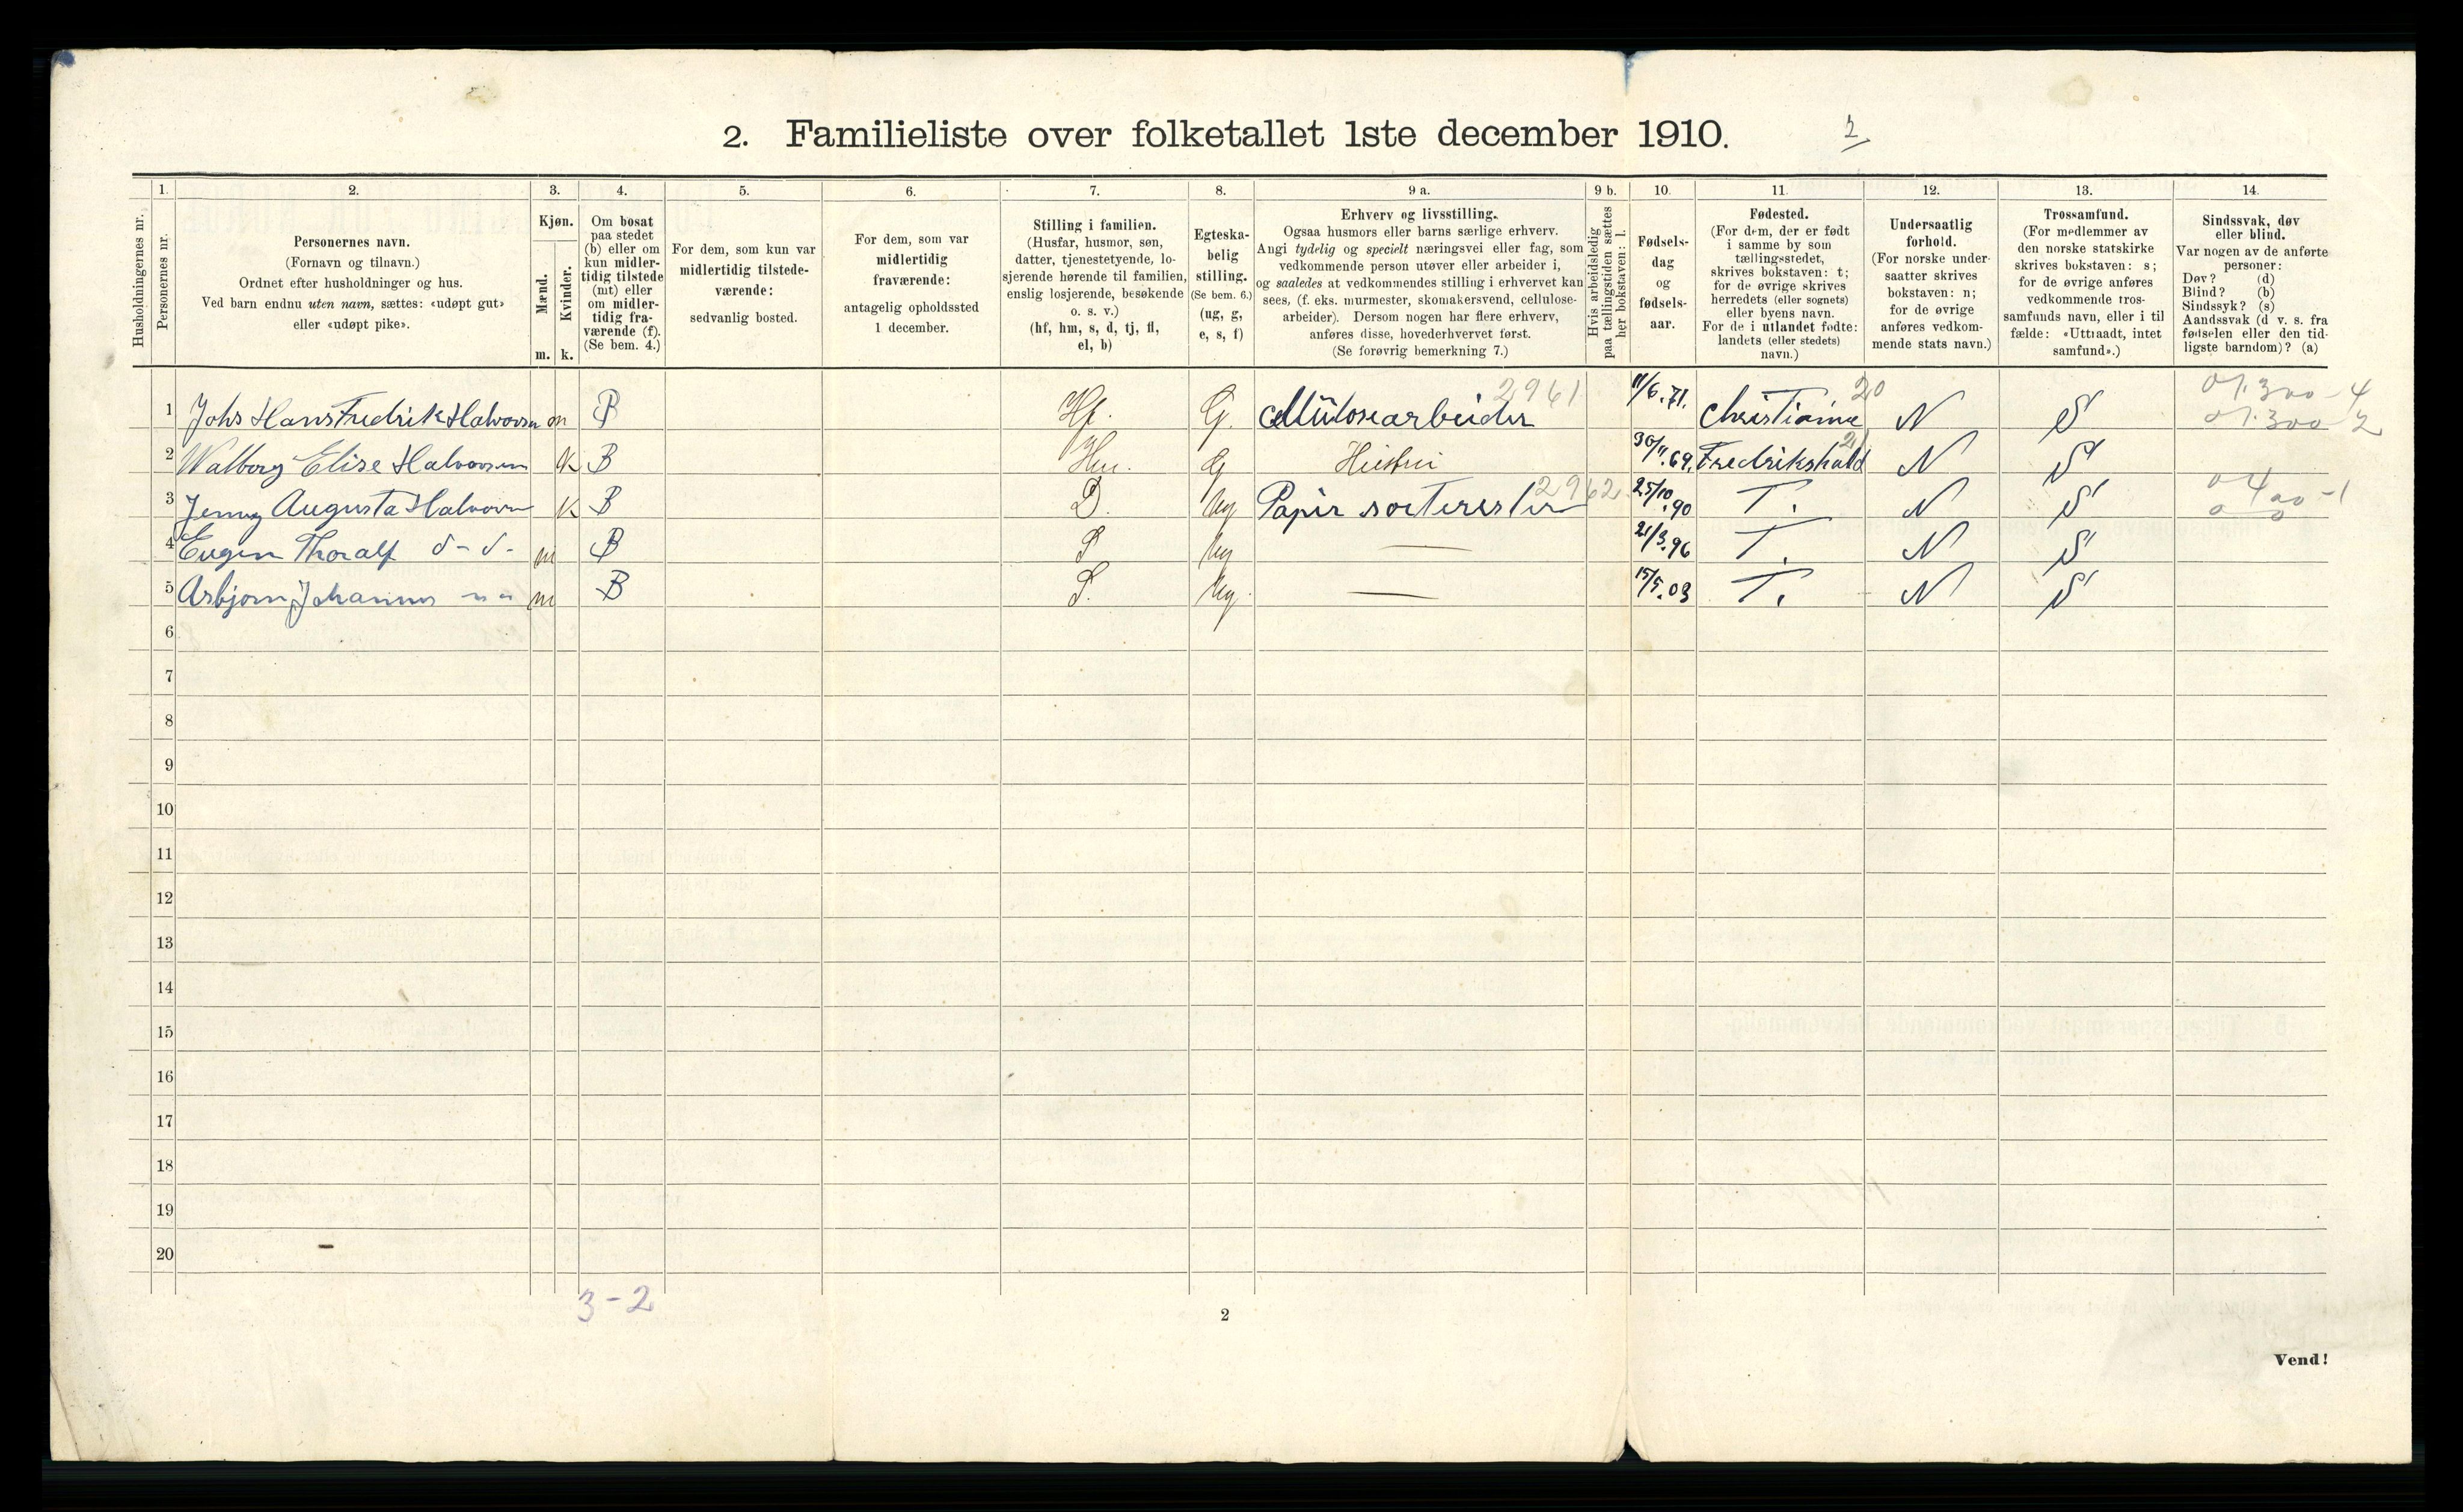 2. Familieliste over folketallet 1ste december 1910.
2
1. 2. 3. 4. 5. 6. 7. 8. 9 a. 9 b. 10. 11. 12. 13. 14.
Husholdningernes nr.
Personernes nr.
Personernes navn.
(Fornavn og tilnavn.)
Ordnet efter husholdninger og hus.
Ved barn endnu uten navn, sættes: «udøpt gut»
eller «udøpt pike».
Kjøn.
Mænd.
Kvinder.
m. k.
Om bosat
paa stedet
(b) eller om
kun midler-
tidig tilstede
(mt) eller
om midler-
tidig fra-
værende (f).
(Se bem. 4.)
For dem, som kun var
midlertidig tilstede-
værende:
sedvanlig bosted.
For dem, som var
midlertidig
fraværende:
antagelig opholdssted
1 december.
Stilling i familien.
(Husfar, husmor, søn,
datter, tjenestetyende, lo-
sjerende hørende til familien,
enslig losjerende, besøkende
o. s. v.)
(hf, hm, s, d, tj, fl,
el, b)
Egteska-
belig
stilling.
(Se bem. 6.)
(ug, g,
e, s, f)
Erhverv og livsstilling.
Ogsaa husmors eller barns særlige erhverv.
Angi tydelig og specielt næringsvei eller fag, som
vedkommende person utøver eller arbeider i,
og saaledes at vedkommendes stilling i erhvervet kan
sees, (f. eks. murmester, skomakersvend, cellulose-
arbeider). Dersom nogen har flere erhverv,
anføres disse, hovederhvervet først.
(Se forøvrig bemerkning 7.)
Hvis arbeidsledig
paa tællingstiden sættes
her bokstaven: l.
Fødsels-
dag
og
fødsels-
aar.
Fødested.
(For dem, der er født
i samme by som
tællingsstedet,
skrives bokstaven: t;
for de øvrige skrives
herredets (eller sognets)
eller byens navn.
For de i utlandet fødte:
landets (eller stedets)
navn.)
Undersaatlig
forhold.
(For norske under-
saatter skrives
bokstaven: n;
for de øvrige
anføres vedkom-
mende stats navn.)
Trossamfund.
(For medlemmer av
den norske statskirke
skrives bokstaven: s;
for de øvrige anføres
vedkommende tros-
samfunds navn, eller i til
fælde: «Uttraadt, intet
samfund».)
Sindssvak, døv
eller blind.
Var nogen av de anførte
personer:
Døv? (d)
Blind? (b)
Sindssyk? (s)
Aandssvak (d v. s. fra
fødselen eller den tid-
ligste barndom)? (a)
1 Johs Hans Fredrik Halvorsen m B Hf. G. Cellülosearbeider 2961 11/6.71. Christiania 20 N S 01.300-4
01.300 2
2 Walborg Elise Halvorsen K B Hm. G Hüstru 30/11.69. Fredrikshald 21 N S
3 Jenny Augusta Halvorsen K B D. Ug Papir sorterer 2962 25/10.90 T. N S 0400-1
0 0
4 Eugen Thoralf d-d- m B S Ug — 21/3.96 T. N S
5 Asbjørn Johannes m B S. Ug. — 15/5.03 T. N S
6
7
8
9
10
11
12
13
14
15
16
17
18
19
20
3-2
2
Vend!